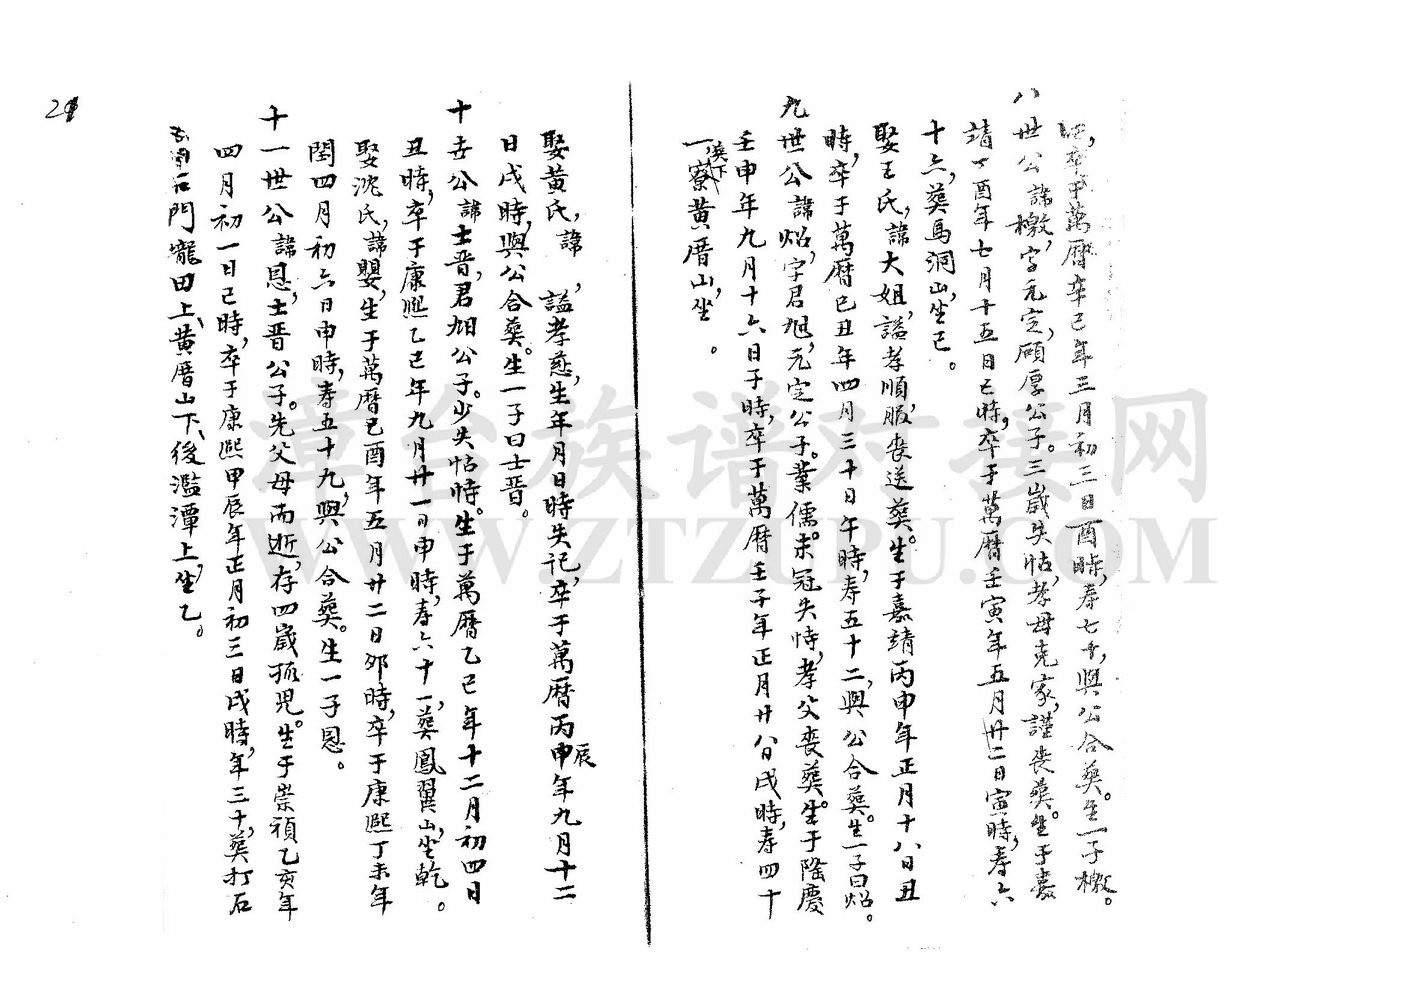 卒于萬曆辛巳年三月初三日酉時，壽七十，與公合葬。生一子檄。
八世公諱檄，字元定，頋厚公子。三歲失怙，孝母克家，謹丧葬。生于嘉
靖丁酉年七月十五日巳時，卒于萬曆壬寅年五月廿二日寅時，壽六
十六，葬馬洞山，坐己。
娶王氏，諱大姐，謚孝順，服丧送葬。生于嘉靖丙申年正月十八日丑
時，卒于萬曆己丑年四月三十日午時，壽五十二，與公合葬。生一子曰炤。
九世公諱炤，字君旭，元定公子。業儒。未冠失恃，孝父丧葬。生于隆慶
壬申年九月十六日子時，卒于萬曆壬子年正月廿八日戌時，壽四十
一，葬下寮黄厝山，坐　。
娶黄氏，諱　，謚孝慈，生年月日時失记，卒于萬曆丙申辰年九月十二
日戌時，與公合葬。生一子曰士晋。
十世公諱士晋，君旭公子。少失怙恃。生于萬曆乙巳年十二月初四日
丑時，卒于康熙乙巳年九月廿一日申時，壽六十一，葬鳳翼山，坐乾。
娶沈氏，諱嬰，生于萬曆己酉年五月廿二日卯時，卒于康熙丁未年
閏四月初六日申時，壽五十九，與公合葬。生一子恩。
十一世公諱恩，士晋公子。先父母而逝，存四歲孤兒。生于崇禎乙亥年
四月初一日己時，卒于康熙甲辰年正月初三日戌時，年三十，葬打石
石門寵田上，黄厝山下，後濫潭上，坐乙。
漳台族谱对接网
WWW.ZTZUPU.COM